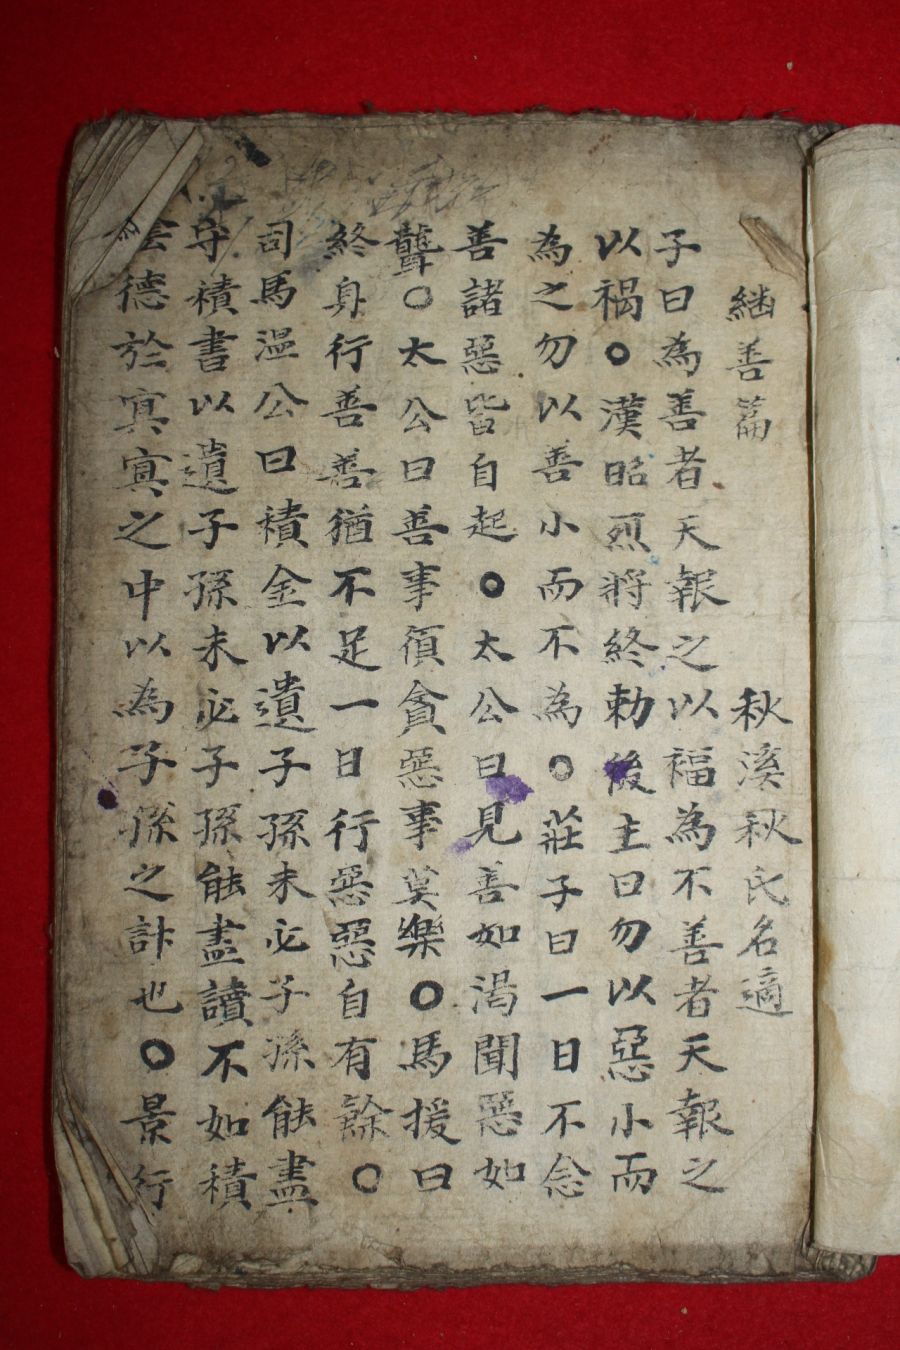 継善篇 秋溪秋氏名適
子曰為善者天報之以福為不善者天報之
以禍○漢昭烈將終勅後主曰勿以惡小而
為之勿以善小而不為○莊子曰一日不念
善諸惡皆自起○太公曰見善如渴聞惡如
聾○太公曰善事須貪惡事莫樂○馬援曰
終身行善善猶不足一日行惡惡自有餘○
司馬温公曰積金以遺子孫未必子孫能盡
守積書以遺子孫未必子孫能盡讀不如積
陰德於冥冥之中以為子孫之計也○景行